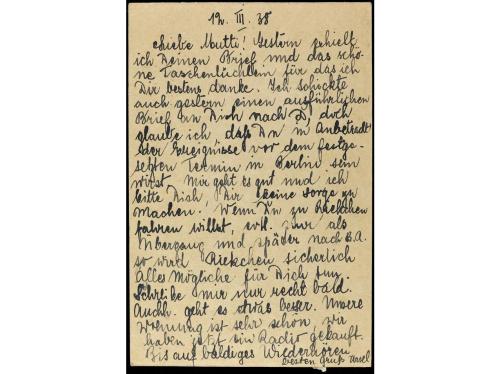 12. III. 38
Liebe Mutti! Gestern erhielt
ich Deinen Brief und das schö-
ne Taschentüchlein für das ich
Dir bestens danke. Ich schickte
auch gestern einen ausführlichen
Brief an Dich nach D, doch
glaube ich daß Du in Anbetracht
der Ereignisse vor dem festge-
setzten Termin in Berlin sein
wirst. Mir geht es gut und ich
bitte Dich, Dir keine Sorge zu
machen. Wenn Du zu Rickchen
fahren willst, evtl. zwar als
Übergang und später nach B.A.
so wird Rickchen sicherlich
alles Mögliche für Dich tun.
Schreibe mir nur recht bald.
geht es etwas besser. Unsere
Wohnung ist sehr schön wir
haben jetzt ein Radio gekauft.
Bis auf baldiges Wiederhören
besten Gruß